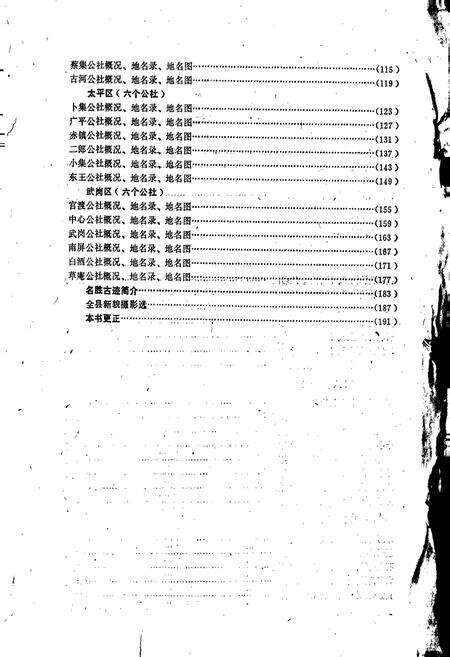 蔡集公社概况、地名录、地名图……………………………………(115)
古河公社概况、地名录、地名图……………………………………(119)
太平区(六个公社)
卜集公社概况、地名录、地名图……………………………………(123)
广平公社概况、地名录、地名图……………………………………(127)
赤镇公社概况、地名录、地名图……………………………………(131)
二郎公社概况、地名录、地名图……………………………………(137)
小集公社概况、地名录、地名图……………………………………(143)
东王公社概况、地名录、地名图……………………………………(149)
武岗区(六个公社)
官渡公社概况、地名录、地名图……………………………………(155)
中心公社概况、地名录、地名图……………………………………(159)
武岗公社概况、地名录、地名图……………………………………(163)
南屏公社概况、地名录、地名图……………………………………(167)
白酒公社概况、地名录、地名图……………………………………(171)
草庵公社概况、地名录、地名图……………………………………(177)
名胜古迹简介……………………………………(183)
全县新貌摄影选……………………………………(187)
本书更正……………………………………(191)